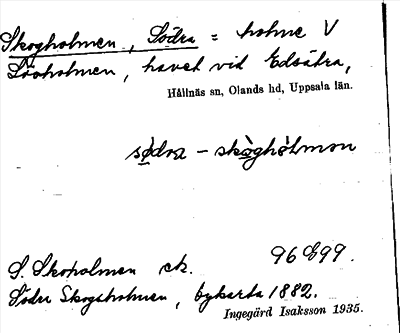 Skogholmen, Södra = holme V
Lövholmen, havet vid Edsätra,
Hållnäs sn, Olands hd, Uppsala län.
södra - skòghòlmən
S. Skoholmen ek. 96 G 99.
Södra Skogsholmen, bykarta 1882.
Ingegärd Isaksson 1935.